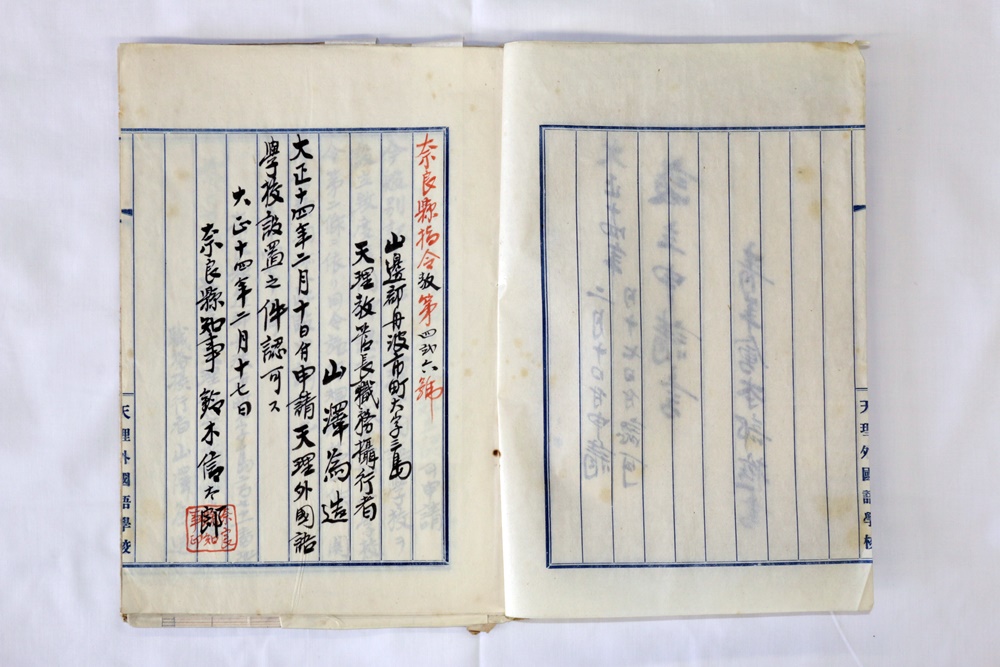 奈良縣指令教第四弐六號
山邊郡丹波市町大字三島
天理教管長職務攝行者
山澤為造
大正十四年二月十日付申請天理外國語
學校設置之件認可ス
大正十四年二月十七日
奈良縣知事 鈴木信太郎
奈良縣知事印
天理外國語學校
天理外國語學校